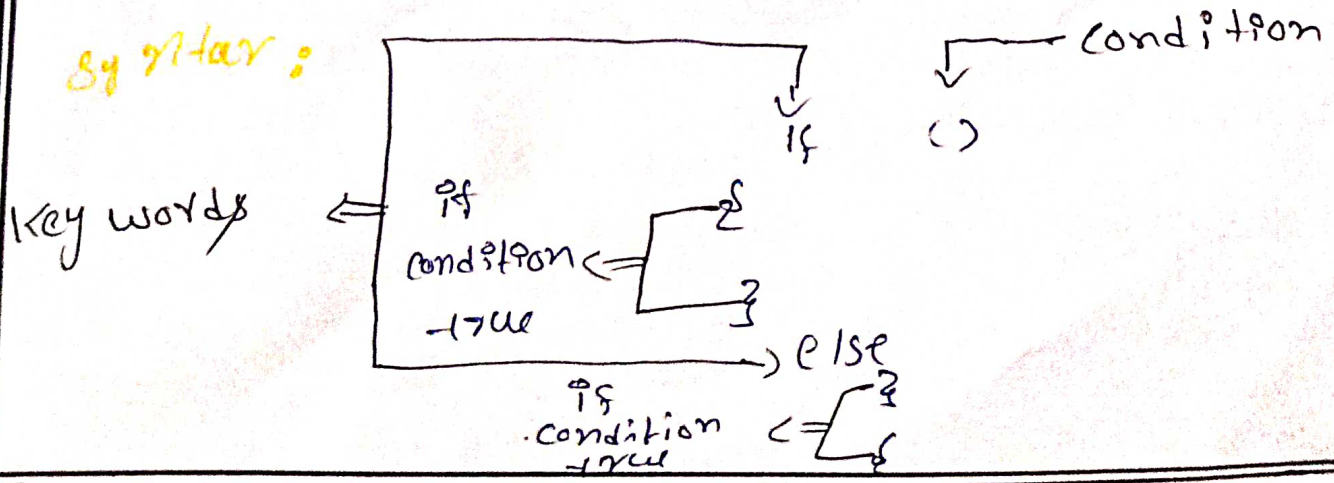 Syntax :
condition
If ()
Key words
if {
condition
true }
else
if }
condition
true {